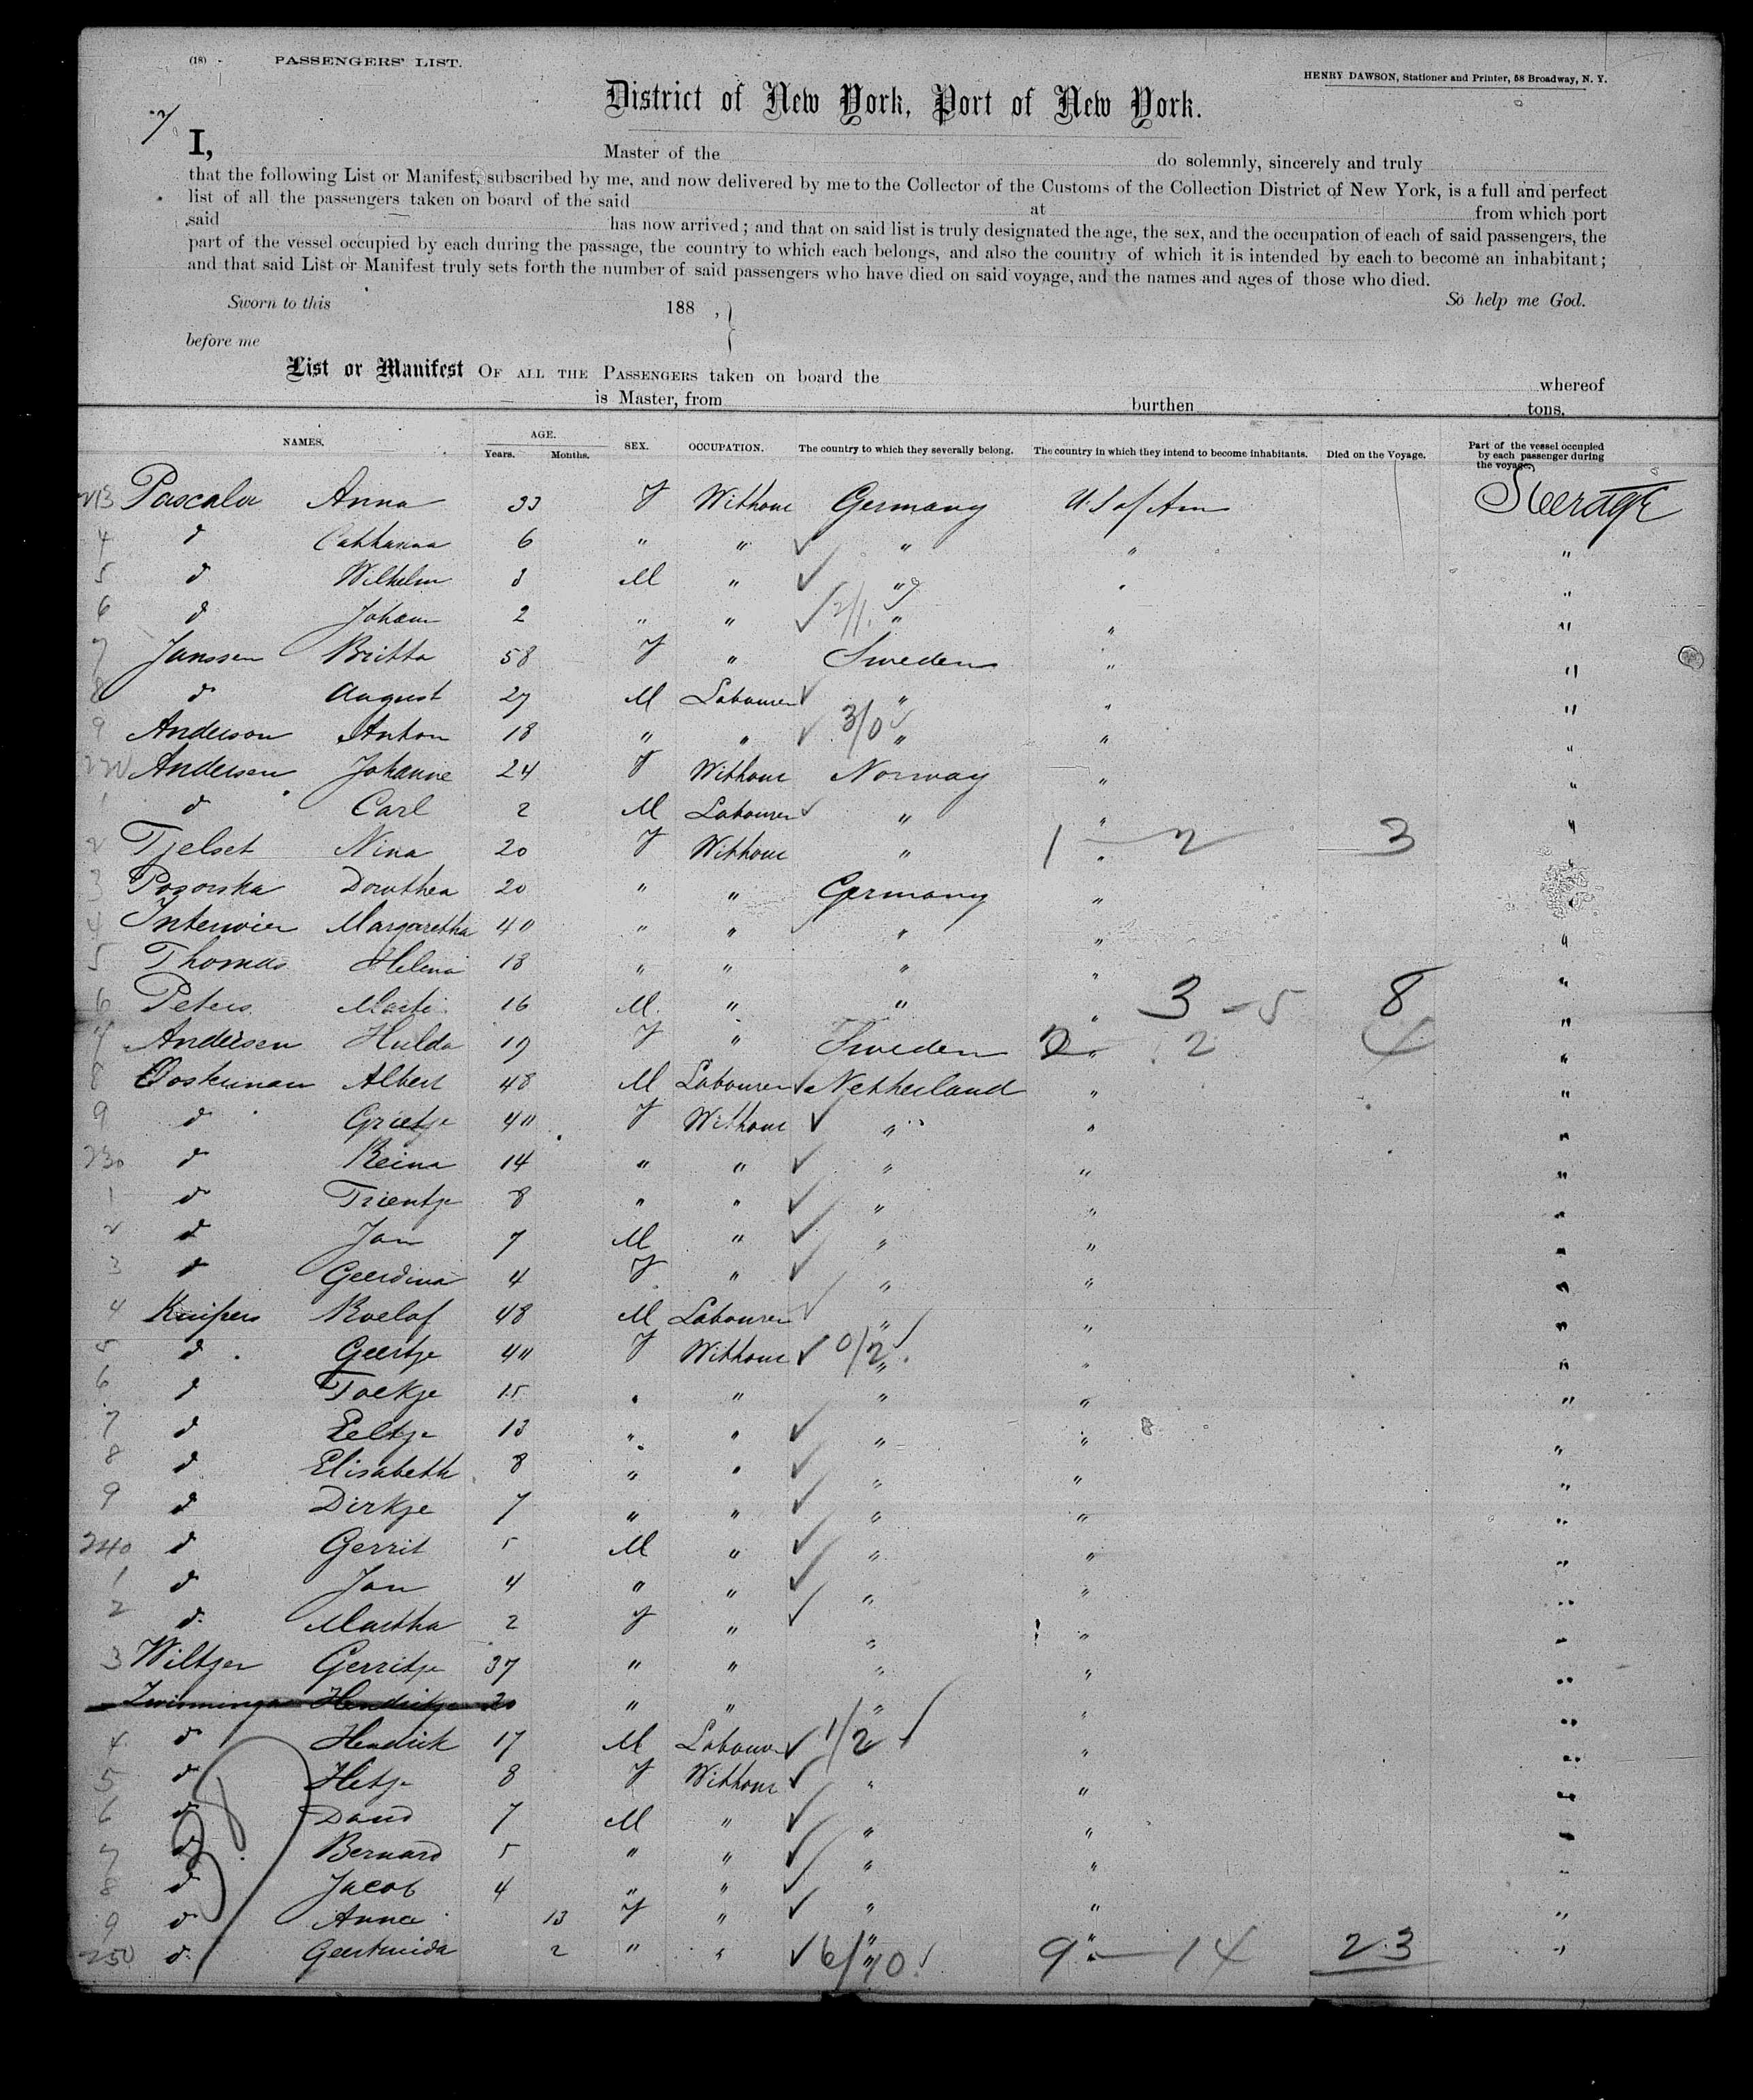 (18) PASSENGERS' LIST.
HENRY DAWSON, Stationer and Printer, 58 Broadway, N. Y.
District of New York, Port of New York.
I, Master of the do solemnly, sincerely and truly
that the following List or Manifest, subscribed by me, and now delivered by me to the Collector of the Customs of the Collection District of New York, is a full and perfect
list of all the passengers taken on board of the said at from which port
said has now arrived; and that on said list is truly designated the age, the sex, and the occupation of each of said passengers, the
part of the vessel occupied by each during the passage, the country to which each belongs, and also the country of which it is intended by each to become an inhabitant;
and that said List or Manifest truly sets forth the number of said passengers who have died on said voyage, and the names and ages of those who died.
Sworn to this 188 , So help me God.
before me
List or Manifest OF ALL THE PASSENGERS taken on board the whereof
is Master, from burthen tons.
NAMES. AGE. Years. Months. SEX. OCCUPATION. The country to which they severally belong. The country in which they intend to become inhabitants. Died on the Voyage. Part of the vessel occupied by each passenger during the voyage.
213 Anna 33 F Without Germany U S of Am Steerage
4 d Catharina 6 " " " " "
5 d Wilhelm 3 M " " " "
6 d Johann 2 " " 2/1 " " "
7 Janssen Britta 58 F " Sweden " "
8 d August 27 M Labourer " " "
9 Anderson Anton 18 " " 3/0 " " "
220 Andersen Johanne 24 F Without Norway " "
1 d Carl 2 M Labourer " " "
2 Tjelset Nina 20 F Without " " 1 - 2 3 "
3 Pogorska Dorothea 20 " " Germany " "
4 Margaretha 40 " " " " "
5 Thomas Helena 18 " " " " "
6 Peters 16 M " " " 3 - 5 8 "
7 Andersen Hulda 19 F " Sweden 2 " 2 4 "
8 Oosterman Albert 48 M Labourer Netherland " "
9 d Grietje 40 F Without " " "
230 d Reina 14 " " " " "
1 d Trientje 8 " " " " "
2 d Jan 7 M " " " "
3 d Geerdina 4 F " " " "
4 Kuipers Roelof 48 M Labourer " " "
5 d Geertje 40 F Without 0/2 " " "
6 d Toekje 15 " " " " "
7 d Eeltje 13 " " " " "
8 d Elisabeth 8 " " " " "
9 d Dirkje 7 " " " " "
240 d Gerrit 5 M " " " "
1 d Jan 4 " " " " "
2 d Martha 2 F " " " "
3 Wiltjer Gerritje 37 " " " " "
Zwinninga Hendrikje 20 " " " " "
4 d Hendrik 17 M Labourer 1/2 " "
5 d Hetje 8 F Without " " "
6 d David 7 M " " " "
7 d Bernard 5 " " " " "
8 d Jacob 4 " " " "
9 d Anna 13 F " " " "
250 d 2 " " 6/10 " 9 - 14 23 "